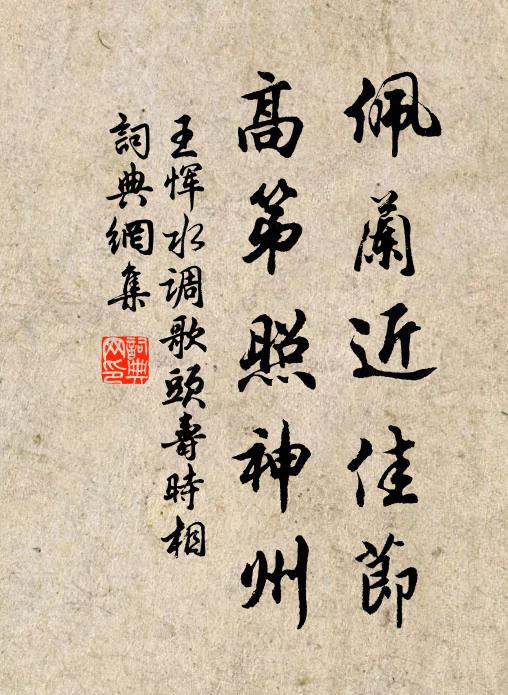 佩蘭近佳節
高第照神州
王恽水调歌頭壽時相
詞典網集
詞典网印